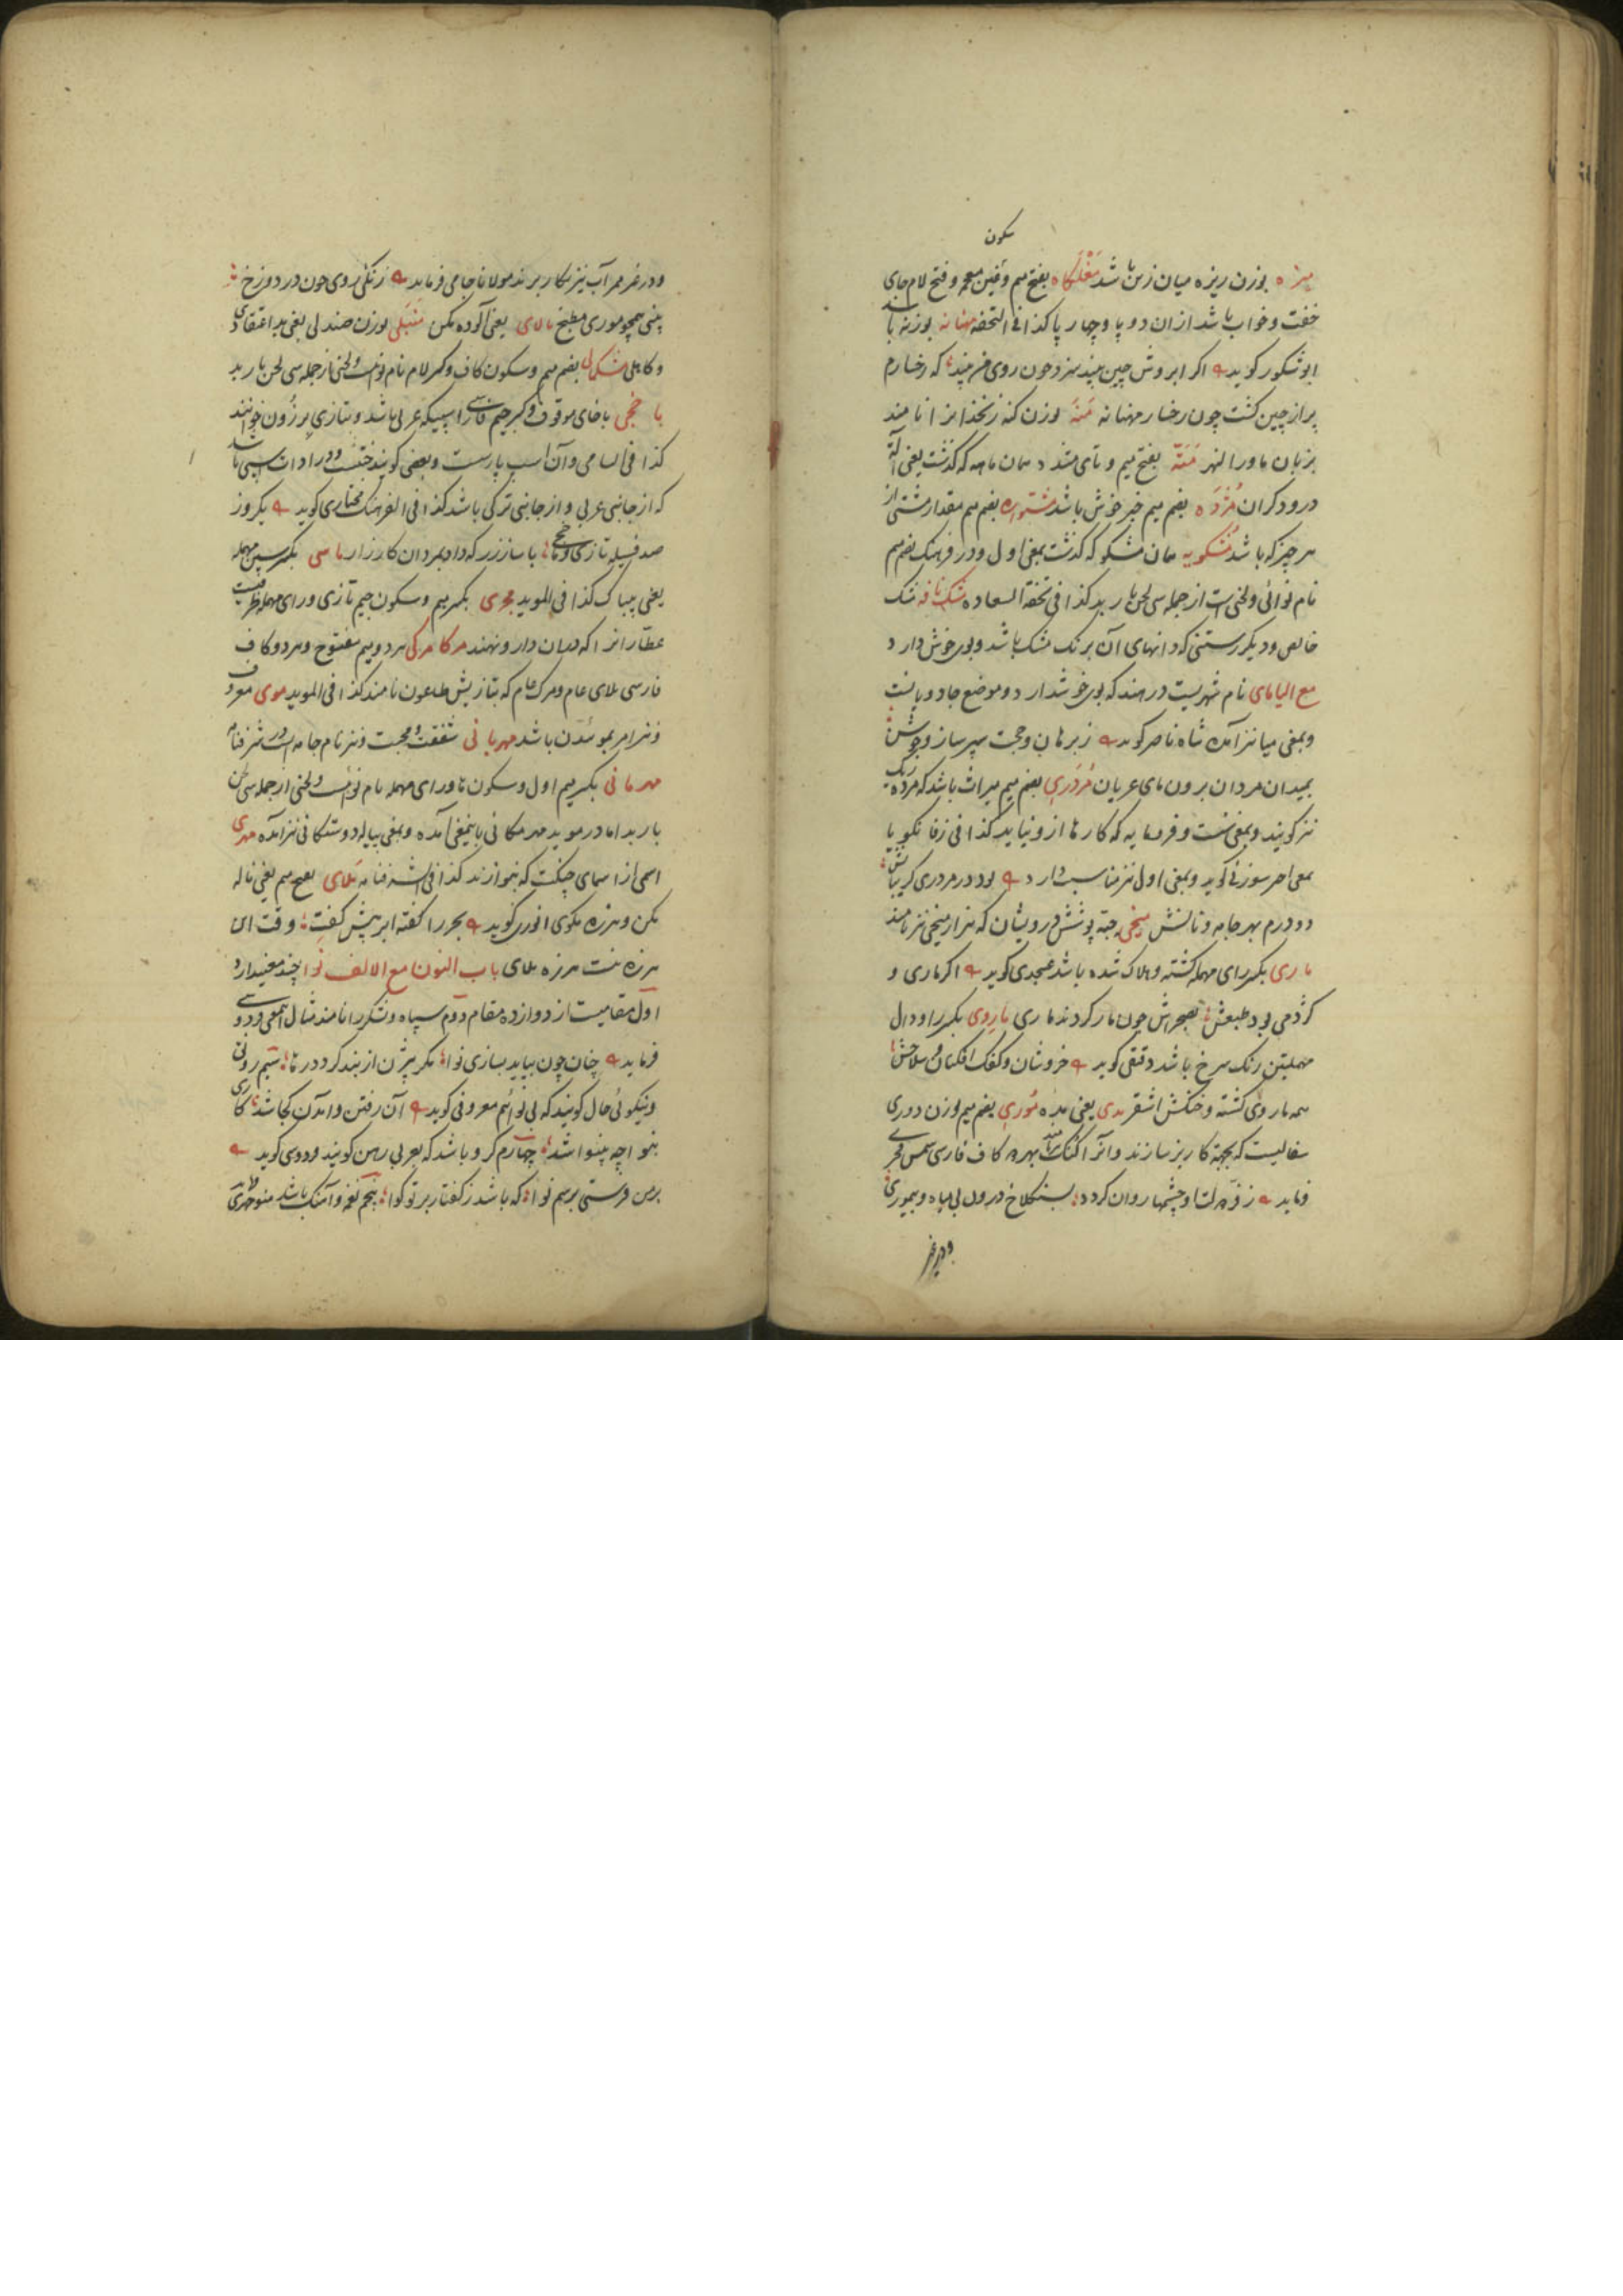 سکون
میزه بوزن ریزه میان زین باشد مَغْلَگاه بفتح میم و غین معجمه و فتح لام جای
خفت و خواب باشد از ان دو پا و چهار پا کذا فی التحفه مهنانه بوزنه باشد
ابوشکور گوید اگر ابروش چین بیند سزد چون روی من بیند که رخسارم
پر از چین گشت چون رخسار مهنانه مَنَه بوزن کنه زنخدانرا نامند
بزبان ماورا النهر مَتَّه بفتح میم و تای مشدد همان ماهه که گذشت یعنی آلة
درودگران مُژدَه بضم میم خبر خوش باشد مشتواره بضم میم مقدار مشتی از
هر چیز که باشد مُشکویه همان مشکو که گذشت بمعنی اول و در فرهنگ بضم میم
نام نوائی ولحنی است از جمله سی لحن باربد کذا فی تحفة السعاده مشک نافه مشک
خالص و دیگر رستنی که دانهای آن برنگ مشک باشد و بوی خوش دارد
مع الیا مای نام شهریست در هند که بوی خوش دارد و موضع جادویانست
وبمعنی میا نیز آمده شاه ناصر گوید ز برهان و حجت سپر ساز و جوشن
بمیدان مردان برون مای عریان مُردَری بضم میم میراث باشد که مرده ریگ
نیز گویند وبمعنی سست و فرومایه که کارها ازو نیاید کذا فی زفانگویا
بمعنی اخر سوزنی گوید وبمعنی اول نیز مناسبت دارد بود در مردری
دو درم بهر جامه و نالش میخی جبه پوشش درویشان که هزار میخی نیز نامند
ماری بکسر رای مهمله کشته و هلاک شده باشد عسجدی گوید اگر ماری و
کژدمی بود طبعش بصحراش چون مار کردند ماری مارِدی بکسر را و دال
مهملتین رنگ سرخ باشد دقیقی گوید خروشان و کفک افکنان و سلاحش
همه ماردی گشته و خنگش اشقر مدی یعنی مده مُوری بضم میم بوزن دوری
سفالیست که بجهة کاریز سازند و انرا گنگ نامند بهر دو کاف فارسی شمس فخری
فرماید روان گردد بسنگلاخ درون بی میاه و بیموری
ودر غیر
ودر غیر ممر آب نیز بکار برند مولانا جامی فرماید زنگئی روی چون در دوزخ
بینی همچو موری مطبخ مالای یعنی آلوده مکن مَنبَلی بوزن صندلی یعنی بد اعتقادی
وکاهلی مُشکمالی بضم میم وسکون کاف وکسر لام نام نوا ولحنی از جمله سی لحن باربد
ماخجی باخای موقوف وکسر جیم فارسی اسپیکه عربی باشد وبتازی برزون خوانند
کذا فی السامی وآن اسب پارست وبعضی گویند خنیست ودر ادات اسپی باشد
که از جانبی عربی و از جانبی ترکی باشد کذا فی الفرهنگ مختاری گوید یکروز
صد قبیله تازی و ماخجی با ساز زر که داد بمردان کارزار ماسی بکسر سین مهمله
یعنی بیباک کذا فی الموید مجری بکسر میم وسکون جیم تازی ورای مهمله ظرفیست
عطارانرا که دران دارو نهند مرگامرگی هردو میم مفتوح وهر دو کاف
فارسی بلای عام ومرگ عام که بتازیش طاعون نامند کذا فی الموید موی معروف
ونیز امر بمویدن باشد مهربانی شفقت ومحبت ونیز نام جامه ایست در شرفنامه
مهرمانی بکسر میم اول وسکون ها ورای مهمله نام نوائیست ولحنی از جمله سی لحن
باربد اما در موید مهرمکانی باینمعنی آمده وبمعنی پیاله دوستکانی نیز آمده مهری
اسمی از اسمای چنگست که بنوازند کذا فی الشرفنامه مَلای بفتح میم یعنی ناله
مکن وهرزه مگوی انوری گوید بحر را گفته ابر پیش کفت وقت این
هرزه نیست هرزه ملای باب النون مع الالف نوا چند معنیدارد
اول مقامیست از دوازده مقام دوم سپاه ولشکر را نامند مثال هر دو معنی فردوسی
فرماید چنان چون بباید بسازی نوا مگر بیژن از بند گردد رها سیم رونق
ونیکوئی حال گویند که بی نوائیم معروفی گوید آن رفتن وامدن کجا شد کاری
بنوا چه بینوا شد چهارم گرو باشد که بعربی رهن گویند فردوسی گوید
بر من فرستی برسم نوا که باشد ز گفتار بر تو گوا پنجم نغمه وآهنگ باشد منوچهری